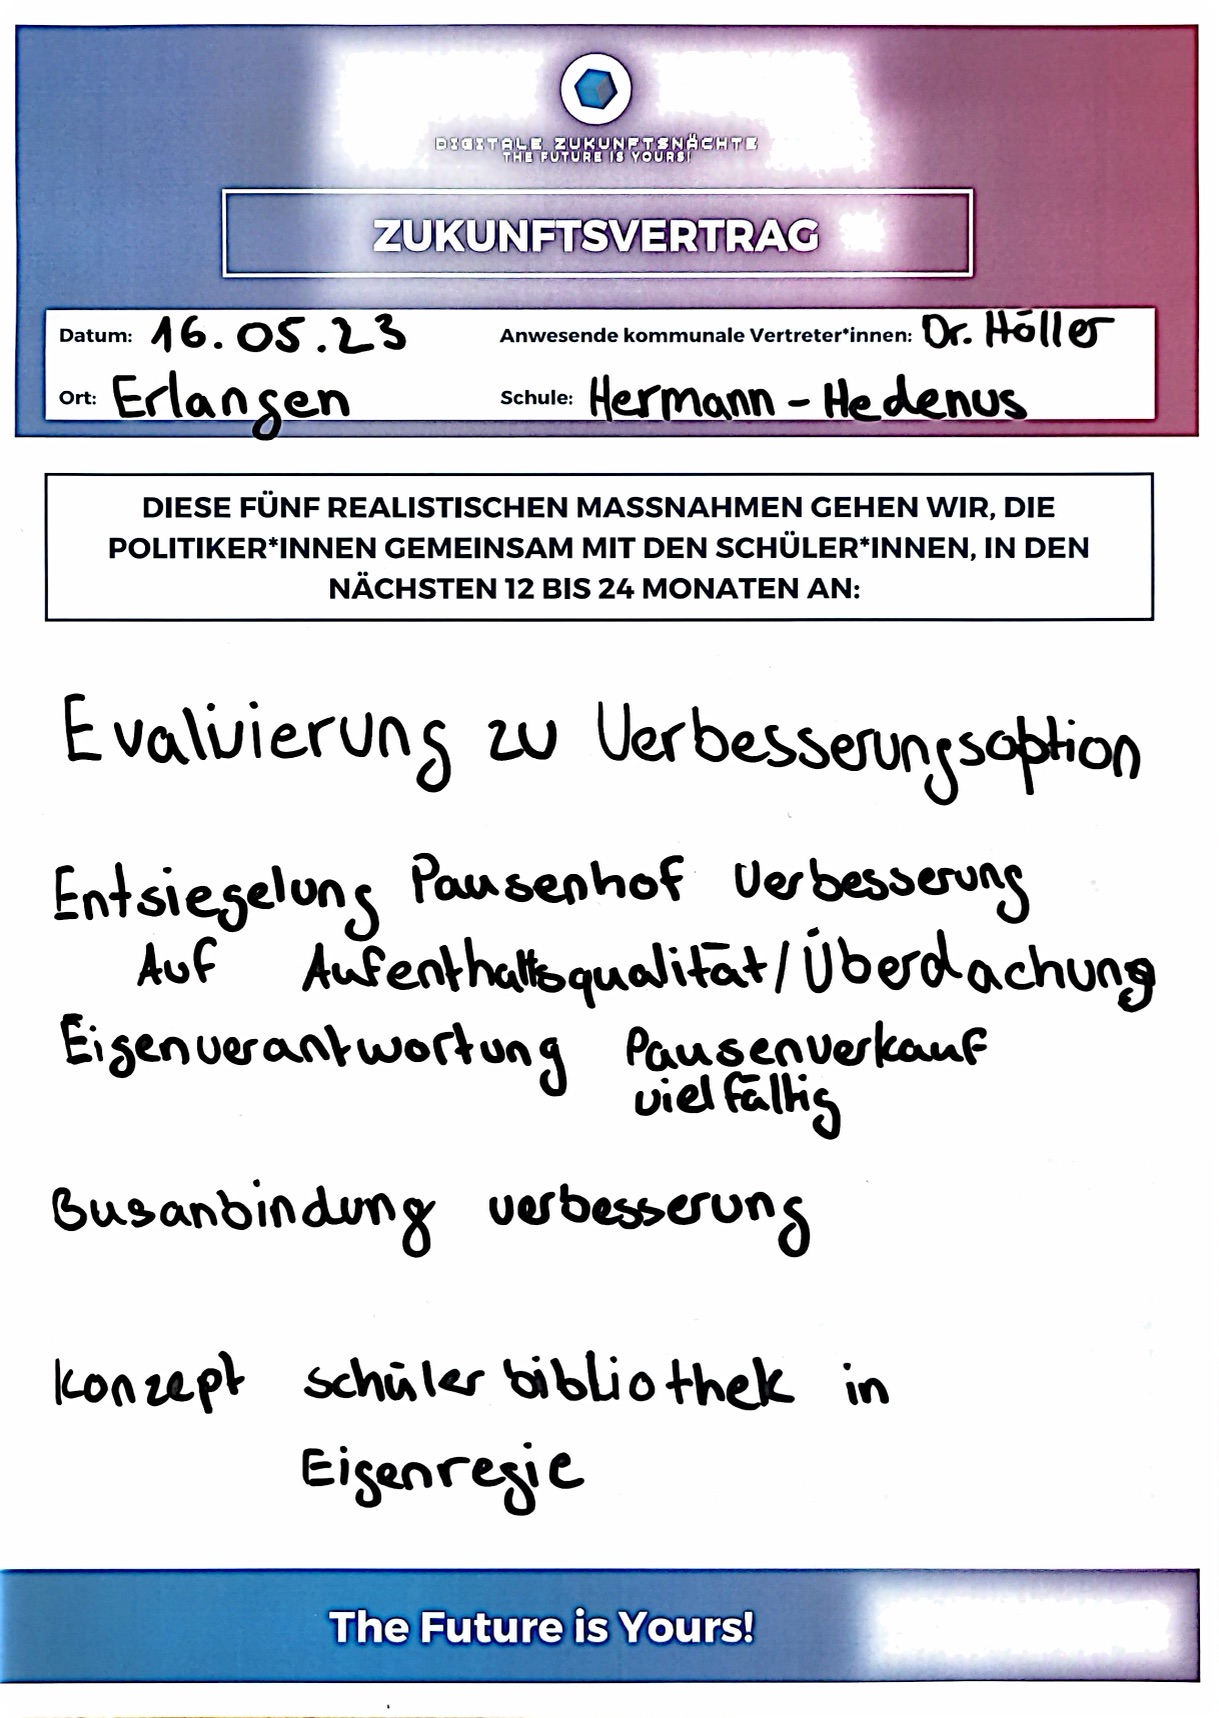 DIGITALE ZUKUNFTSNÄCHTE
THE FUTURE IS YOURS!
ZUKUNFTSVERTRAG
Datum: 16.05.23 Anwesende kommunale Vertreter*innen: Dr. Höller
Ort: Erlangen Schule: Hermann-Hedenus
DIESE FÜNF REALISTISCHEN MASSNAHMEN GEHEN WIR, DIE
POLITIKER*INNEN GEMEINSAM MIT DEN SCHÜLER*INNEN, IN DEN
NÄCHSTEN 12 BIS 24 MONATEN AN:
Evaluierung zu Verbesserungsoption
Entsiegelung Pausenhof Verbesserung
Auf Aufenthaltsqualität/Überdachung
Eigenverantwortung Pausenverkauf
vielfältig
Busanbindung verbesserung
Konzept schüler bibliothek in
Eigenregie
The Future is Yours!